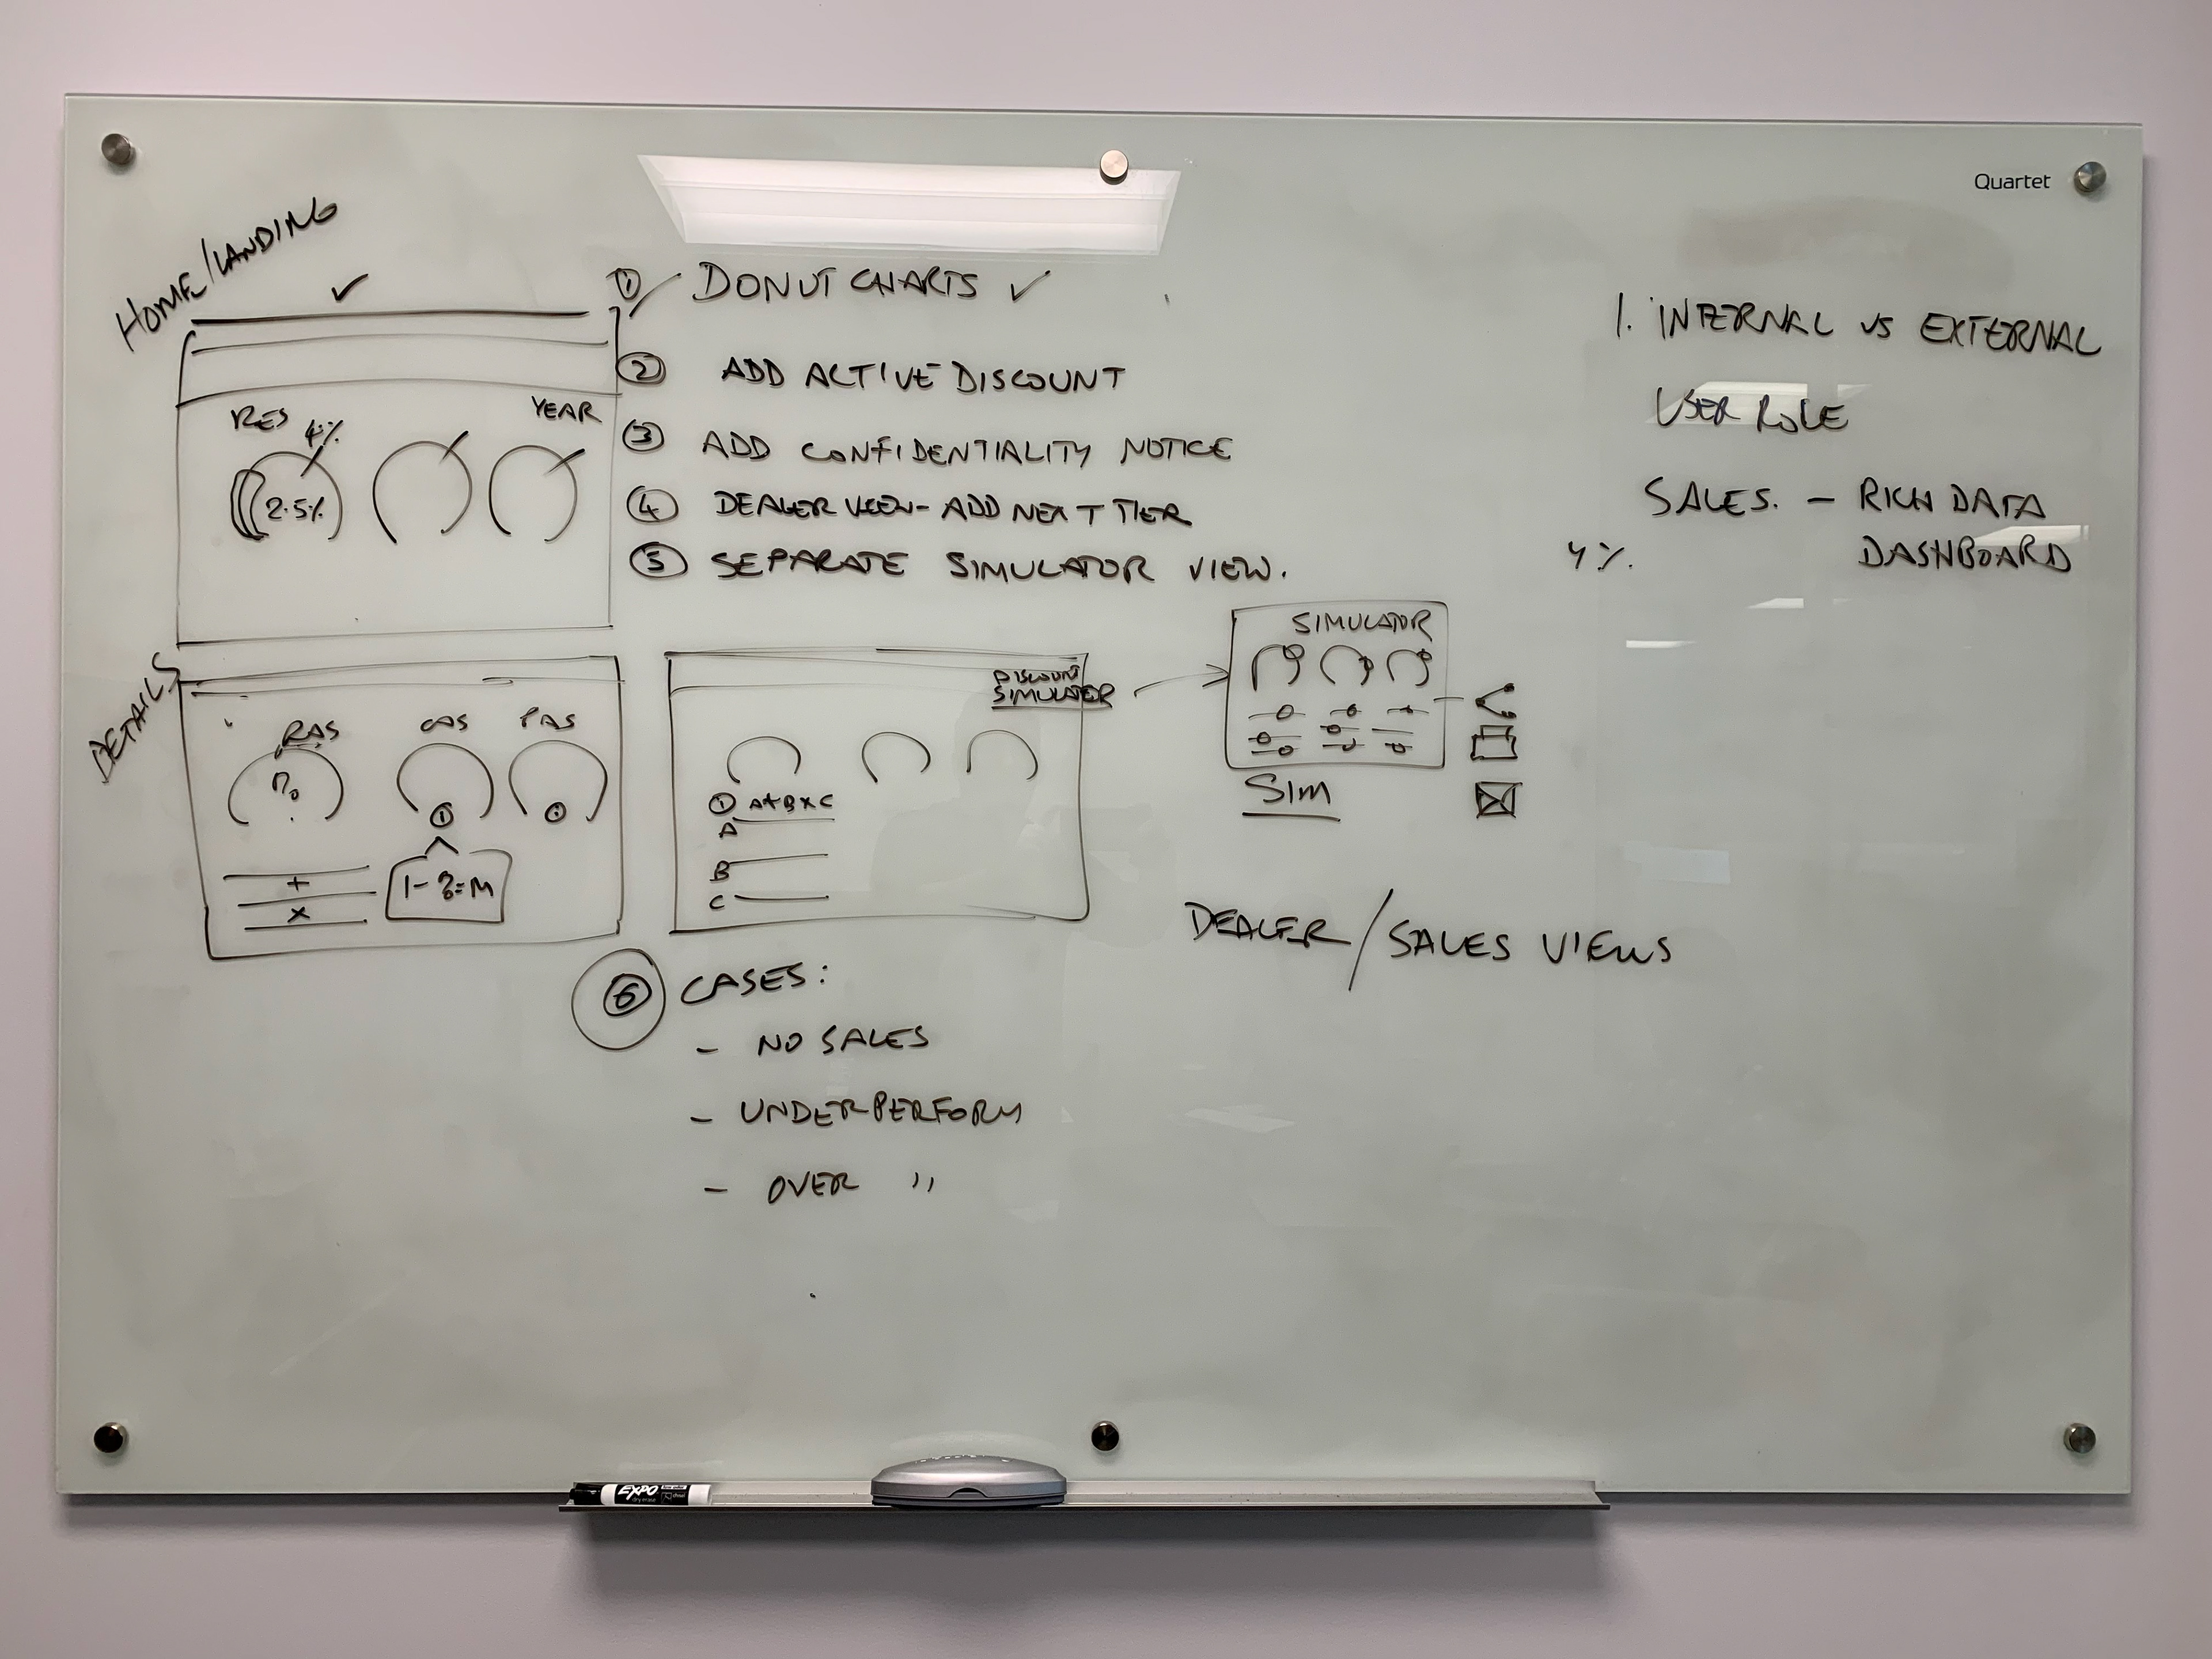 Quartet
HOME/LANDING
✓
RES
4%
YEAR
2.5%
① DONUT CHARTS ✓
② ADD ACTIVE DISCOUNT
③ ADD CONFIDENTIALITY NOTICE
④ DEALER VIEW - ADD NEXT TIER
⑤ SEPARATE SIMULATOR VIEW.
1. INTERNAL VS EXTERNAL
USER ROLE
SALES. - RICH DATA
4%. DASHBOARD
DETAILS
RAS
CAS
PAS
+
×
DISCOUNT
SIMULATOR
① A+B×C
A
B
C
SIMULATOR
SIM
DEALER/SALES VIEWS
⑥ CASES:
- NO SALES
- UNDERPERFORM
- OVER "
EXPO